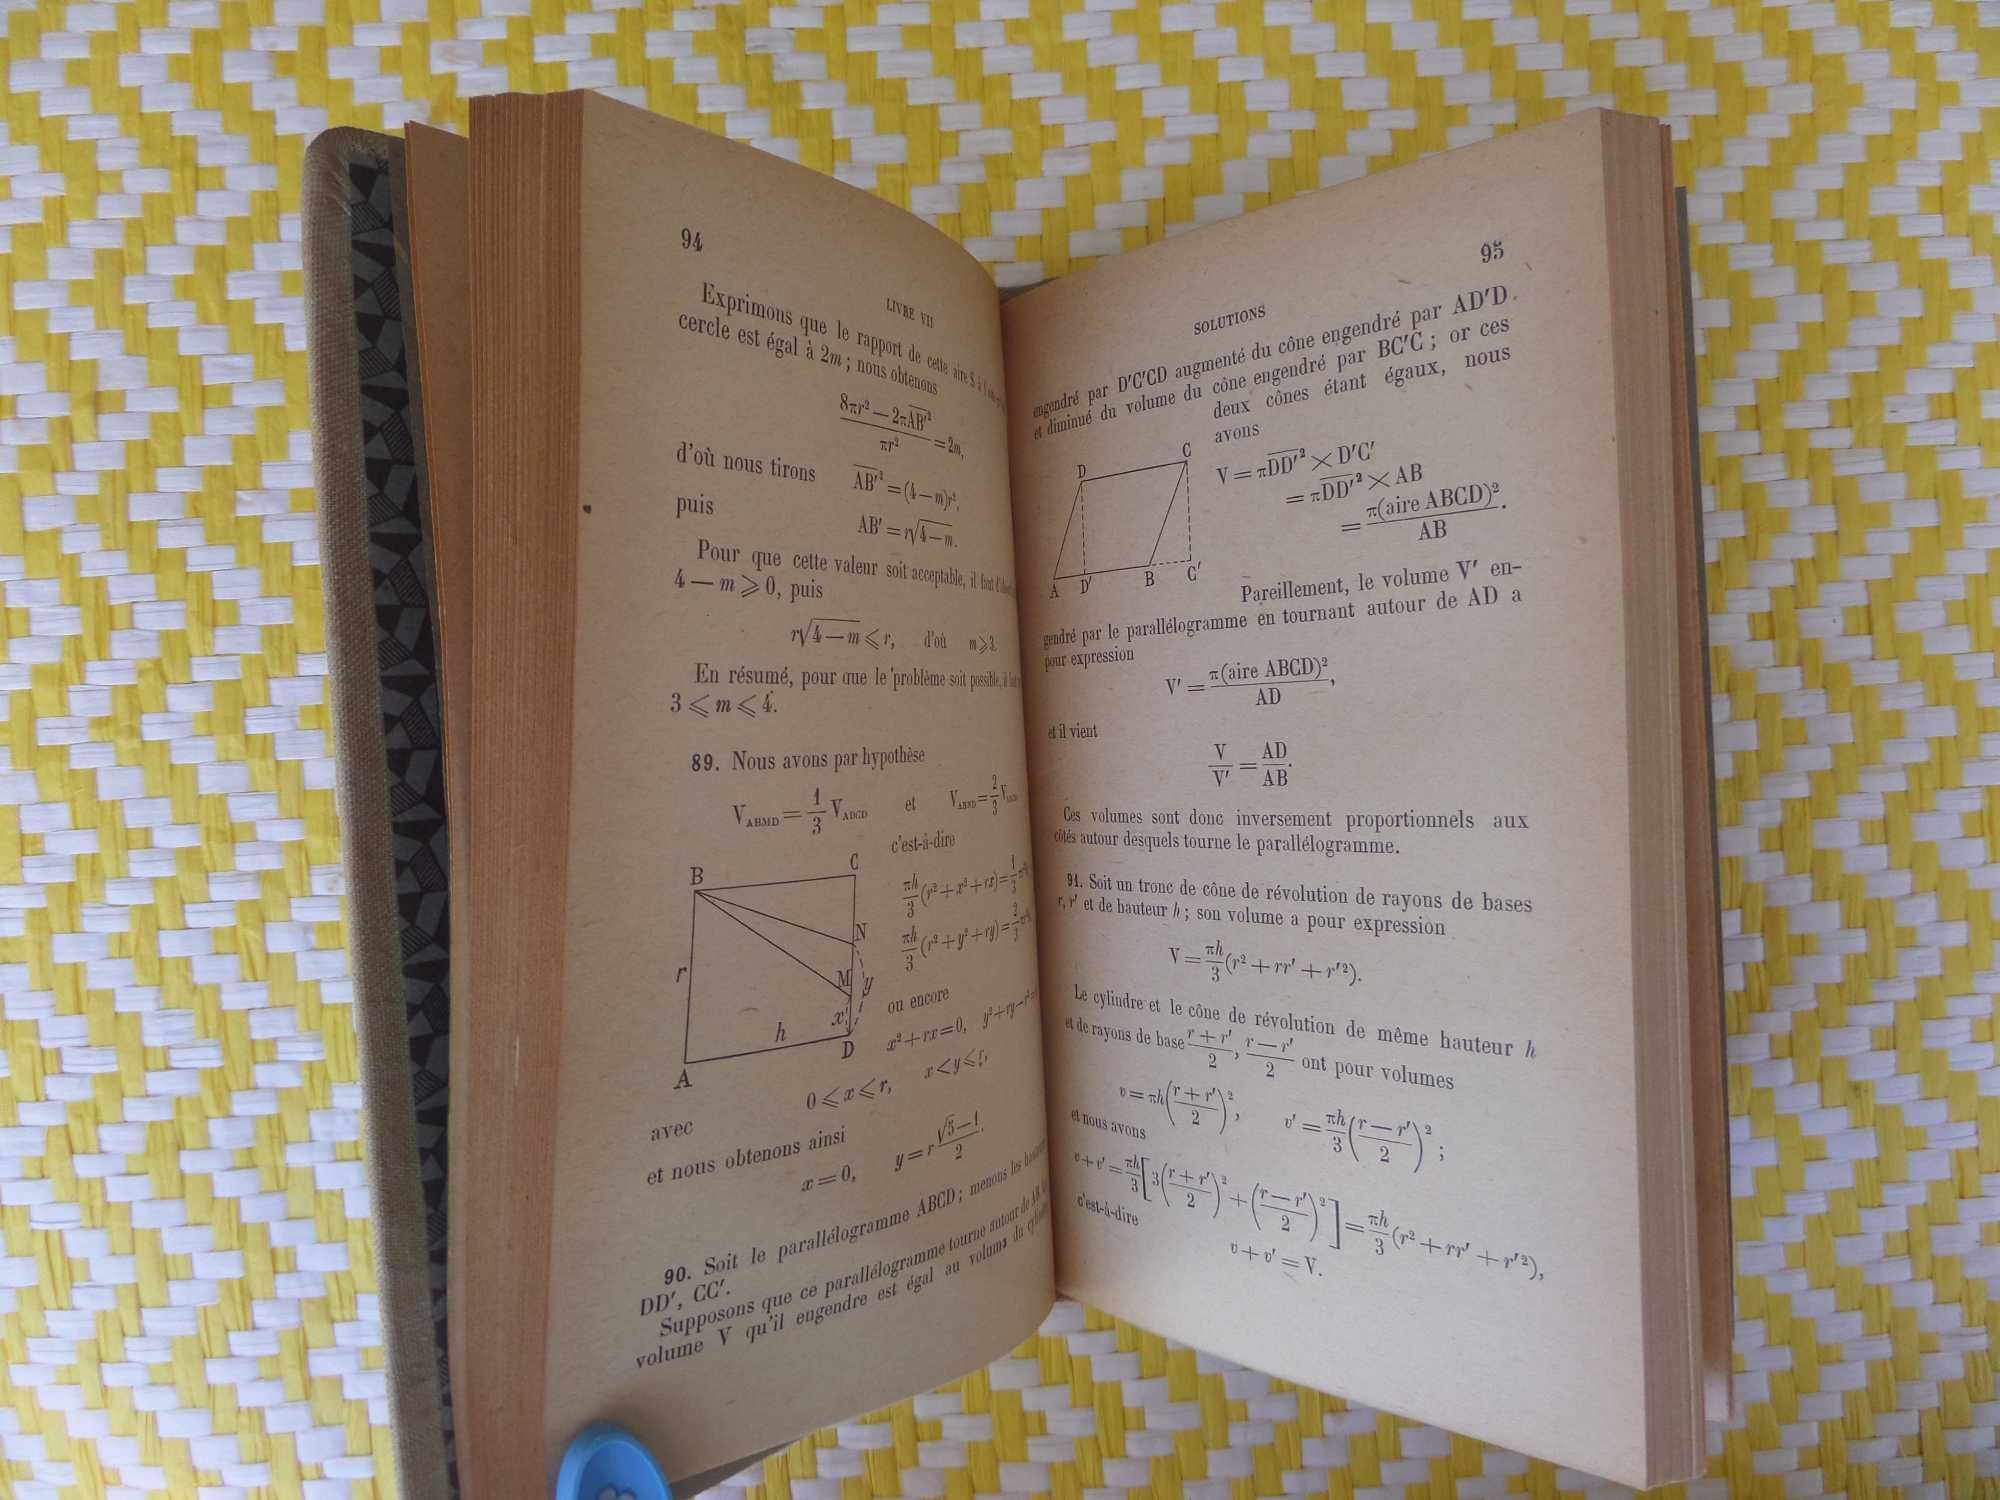 94
LIVRE VII
Exprimons que le rapport de cette aire S à
cercle est égal à 2m ; nous obtenons
(8πr² — 2πAB'²) / πr² = 2m,
d'où nous tirons AB'² = (4 — m)r²,
puis AB' = r√(4 — m).
Pour que cette valeur soit acceptable, il faut
4 — m ⩾ 0, puis
r√(4 — m) ⩽ r, d'où m ⩾ 3.
En résumé, pour que le problème soit possible, il faut
3 ⩽ m ⩽ 4.
89. Nous avons par hypothèse
V_ABMD = 1/3 V_ABCD et V_ABND = 2/3 V_ABCD
c'est-à-dire
πh/3 (r² + x² + rx) = 1/3
πh/3 (r² + y² + ry) = 2/3
ou encore
x² + rx = 0, y² + ry — r² =
B
C
N
M
y
x
r
h
D
A
avec 0 ⩽ x ⩽ r, x < y ⩽ r,
et nous obtenons ainsi
x = 0, y = r (√5 — 1)/2.
90. Soit le parallélogramme ABCD ; menons les hauteurs
DD', CC'.
Supposons que ce parallélogramme tourne autour de AB,
volume V qu'il engendre est égal au volume du cylindre
95
SOLUTIONS
engendré par D'C'CD augmenté du cône engendré par AD'D
et diminué du volume du cône engendré par BC'C ; or ces
deux cônes étant égaux, nous
avons
V = πDD'² × D'C'
= πDD'² × AB
= π(aire ABCD)² / AB.
D
C
A
D'
B
C'
Pareillement, le volume V' en-
gendré par le parallélogramme en tournant autour de AD a
pour expression
V' = π(aire ABCD)² / AD,
et il vient
V/V' = AD/AB.
Ces volumes sont donc inversement proportionnels aux
côtés autour desquels tourne le parallélogramme.
91. Soit un tronc de cône de révolution de rayons de bases
r, r' et de hauteur h ; son volume a pour expression
V = πh/3 (r² + rr' + r'²).
Le cylindre et le cône de révolution de même hauteur h
et de rayons de base (r + r')/2, (r — r')/2 ont pour volumes
v = πh((r + r')/2)², v' = πh/3 ((r — r')/2)² ;
et nous avons
v + v' = πh/3 [3((r + r')/2)² + ((r — r')/2)²] = πh/3 (r² + rr' + r'²),
c'est-à-dire
v + v' = V.